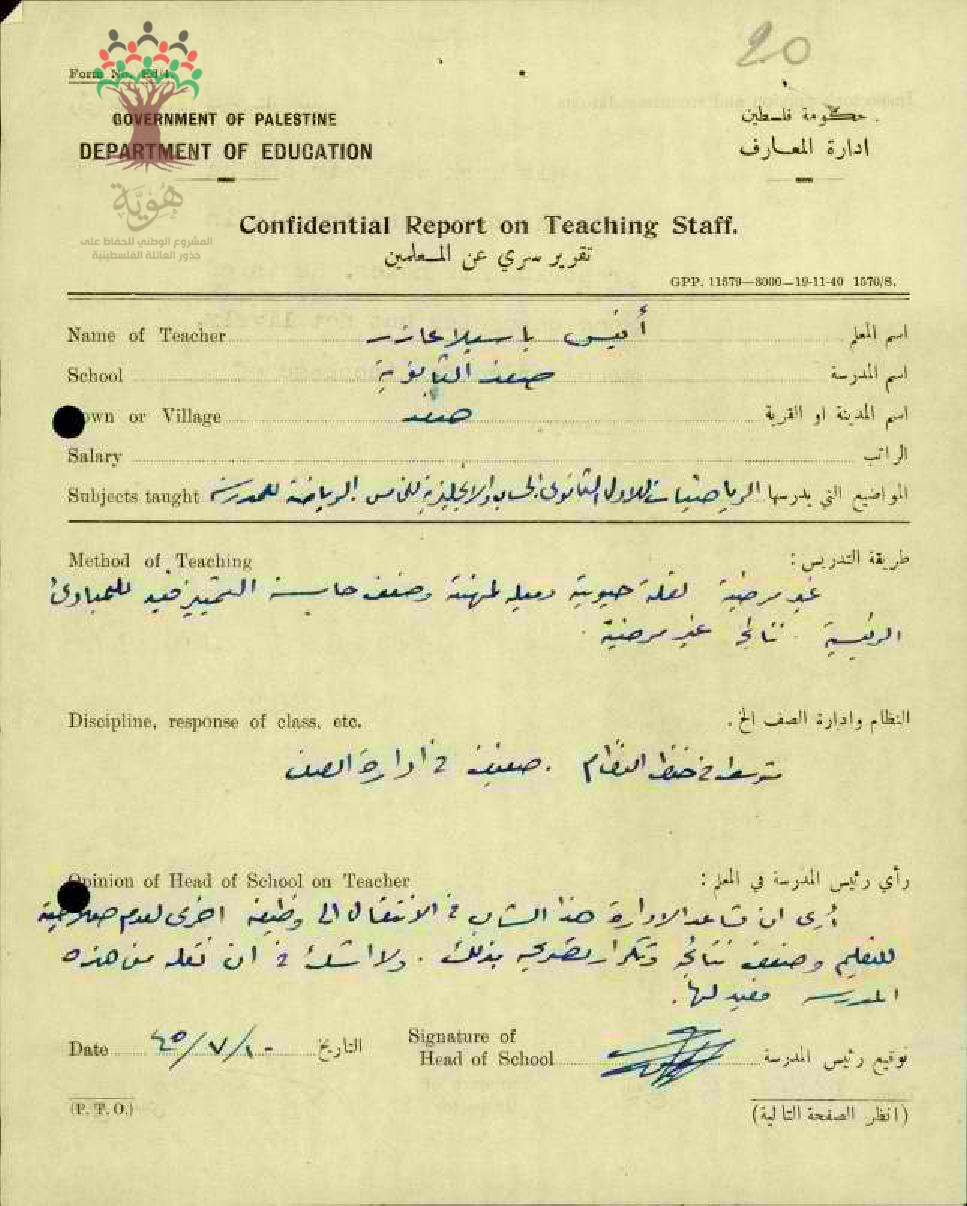 20
Form No. Ed/4.
GOVERNMENT OF PALESTINE
حكومة فلسطين
DEPARTMENT OF EDUCATION
ادارة المعارف
هُوِيَّة
المشروع الوطني للحفاظ على
جذور العائلة الفلسطينية
Confidential Report on Teaching Staff.
تقرير سري عن المعلمين
GPP. 11579—3000—19-11-40 1576/S.
Name of Teacher أنيس باسيلا عازر اسم المعلم
School صفد الثانوية اسم المدرسة
Town or Village صفد اسم المدينة او القرية
Salary الراتب
Subjects taught المواضيع التي يدرسها الرياضيات للاول الثانوي الحساب والانجليزية للخامس الرياضة للمدرسة
Method of Teaching طريقة التدريس:
غير مرضية لقلة حيوية وميله لمهنته وضعف حاسة التمييز فيه للمبادئ
الرئيسية. نتائج غير مرضية.
Discipline, response of class, etc. النظام وادارة الصف الخ.
متوسط في حفظ النظام. ضعيف في ادارة الصف
Opinion of Head of School on Teacher رأي رئيس المدرسة في المعلم:
أرى ان تساعد الادارة هذا الشاب في الانتقال الى وظيفة اخرى لعدم صلاحيته
للتعليم وضعف نتائجه وتكرار تصريحه بذلك. ولا اشك في ان نقله من هذه
المدرسة مفيد لها.
Date ١٠/٧/٤٥ التاريخ
Signature of
Head of School توقيع رئيس المدرسة
(P. T. O.) (انظر الصفحة التالية)